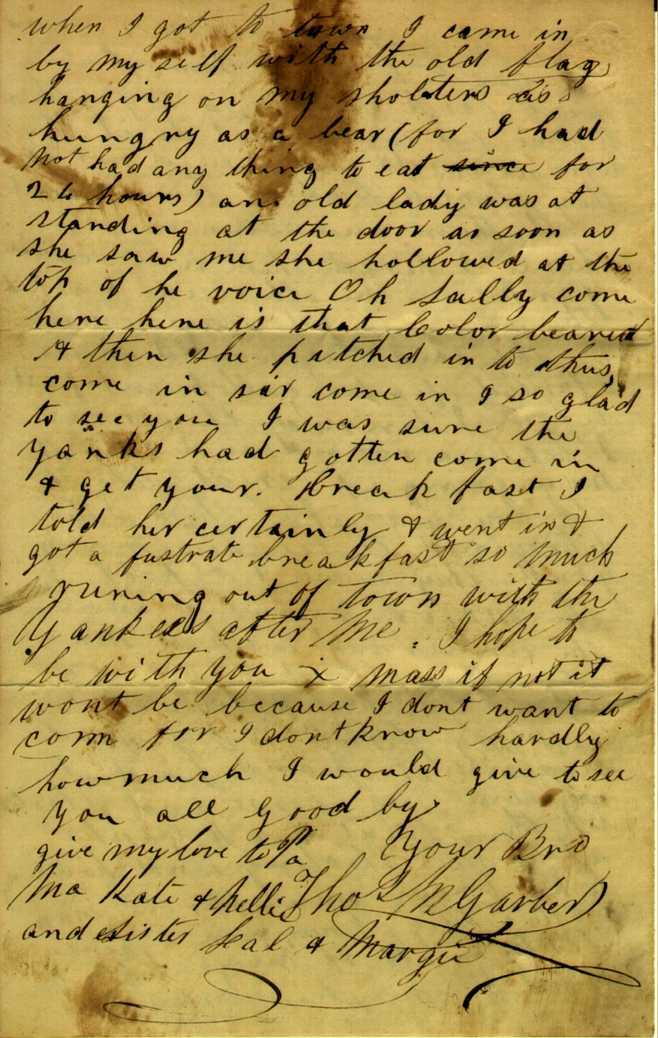 when I got to town I came in
by my self with the old flag
hanging on my sholders as
hungry as a bear (for I had
not had any thing to eat since for
24 hours) an old lady was at
standing at the door as soon as
she saw me she hollowed at the
top of he voice Oh Sally come
here here is that Color bearer
& then she pitched in to thus,
come in sir come in I so glad
to see you I was sure the
Yanks had gotten come in
& get your. breakfast I
told her certainly & went in &
got a fustrate breakfast so much
runing out of town with the
Yankees after me. I hope to
be with you X mass if not it
wont be because I dont want to
com for I dont know hardly
how much I would give to see
you all Good by
give my love to Pa Your Bro
Ma Kate & Nellie Thos M Garber
and Sister & Margie